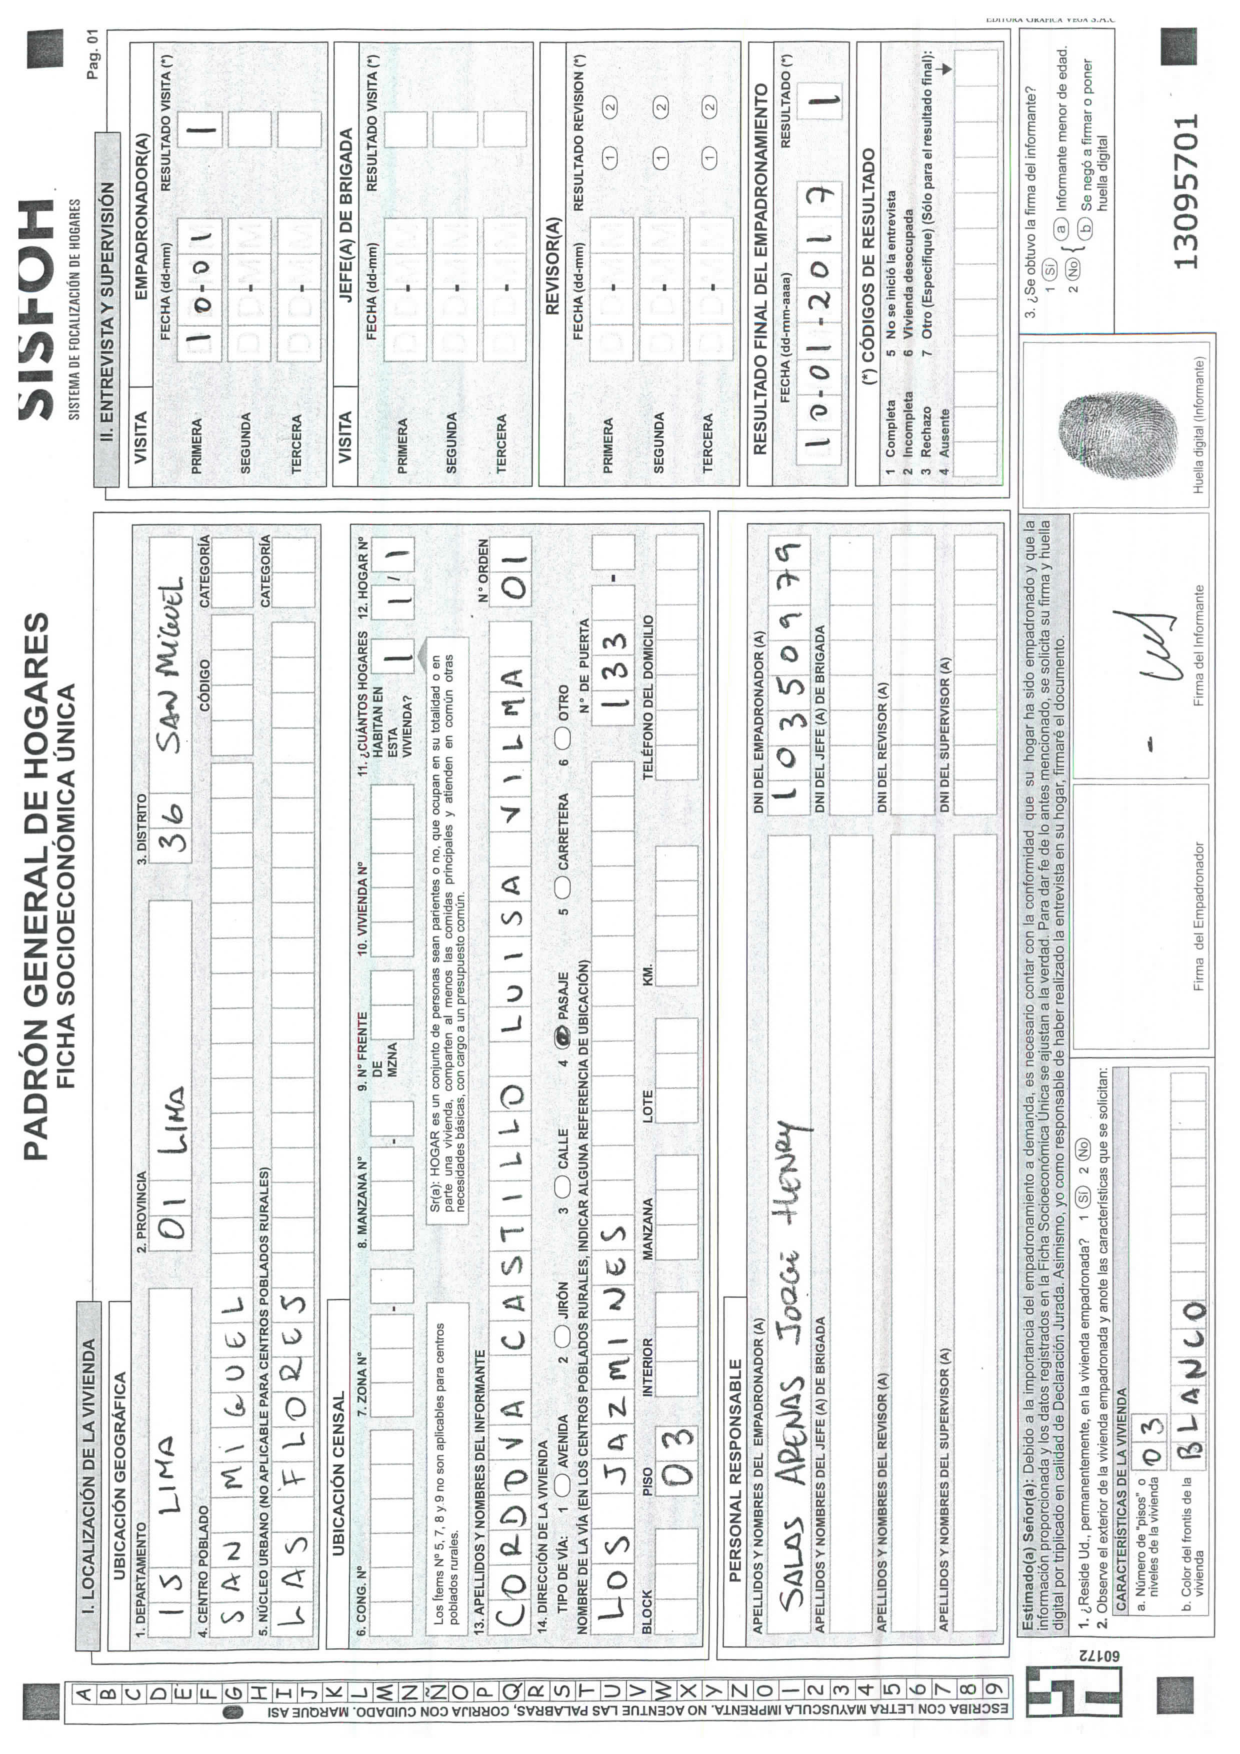 PADRÓN GENERAL DE HOGARES
FICHA SOCIOECONÓMICA ÚNICA
SISFOH
SISTEMA DE FOCALIZACIÓN DE HOGARES
Pag. 01
I. LOCALIZACIÓN DE LA VIVIENDA
UBICACIÓN GEOGRÁFICA
1. DEPARTAMENTO 2. PROVINCIA 3. DISTRITO
15 LIMA 01 LIMA 36 SAN MIGUEL
4. CENTRO POBLADO CÓDIGO CATEGORÍA
SAN MIGUEL
5. NÚCLEO URBANO (NO APLICABLE PARA CENTROS POBLADOS RURALES) CATEGORÍA
LAS FLORES
UBICACIÓN CENSAL
6. CONG. Nº 7. ZONA Nº 8. MANZANA Nº 9. Nº FRENTE DE MZNA 10. VIVIENDA Nº 11. ¿CUÁNTOS HOGARES HABITAN EN ESTA VIVIENDA? 12. HOGAR Nº
1 1/1
Los Ítems Nº 5, 7, 8 y 9 no son aplicables para centros poblados rurales.
Sr(a): HOGAR es un conjunto de personas sean parientes o no, que ocupan en su totalidad o en
parte una vivienda, comparten al menos las comidas principales y atienden en común otras
necesidades básicas, con cargo a un presupuesto común.
13. APELLIDOS Y NOMBRES DEL INFORMANTE N° ORDEN
CORDOVA CASTILLO LUISA VILMA 01
14. DIRECCIÓN DE LA VIVIENDA
TIPO DE VÍA: 1 AVENIDA 2 JIRÓN 3 CALLE 4 PASAJE 5 CARRETERA 6 OTRO
NOMBRE DE LA VÍA (EN LOS CENTROS POBLADOS RURALES, INDICAR ALGUNA REFERENCIA DE UBICACIÓN) N° DE PUERTA
LOS JAZMINES 133 -
BLOCK PISO INTERIOR MANZANA LOTE KM. TELÉFONO DEL DOMICILIO
03
PERSONAL RESPONSABLE
APELLIDOS Y NOMBRES DEL EMPADRONADOR (A) DNI DEL EMPADRONADOR (A)
SALAS ARENAS JORGE HENRY 10350979
APELLIDOS Y NOMBRES DEL JEFE (A) DE BRIGADA DNI DEL JEFE (A) DE BRIGADA
APELLIDOS Y NOMBRES DEL REVISOR (A) DNI DEL REVISOR (A)
APELLIDOS Y NOMBRES DEL SUPERVISOR (A) DNI DEL SUPERVISOR (A)
II. ENTREVISTA Y SUPERVISIÓN
VISITA EMPADRONADOR(A)
FECHA (dd-mm) RESULTADO VISITA (*)
PRIMERA 10-01 1
SEGUNDA DD-MM
TERCERA DD-MM
VISITA JEFE(A) DE BRIGADA
FECHA (dd-mm) RESULTADO VISITA (*)
PRIMERA DD-MM
SEGUNDA DD-MM
TERCERA DD-MM
REVISOR(A)
FECHA (dd-mm) RESULTADO REVISION (*)
PRIMERA DD-MM 1 2
SEGUNDA DD-MM 1 2
TERCERA DD-MM 1 2
RESULTADO FINAL DEL EMPADRONAMIENTO
FECHA (dd-mm-aaaa) RESULTADO (*)
10-01-2017 1
(*) CÓDIGOS DE RESULTADO
1 Completa 5 No se inició la entrevista
2 Incompleta 6 Vivienda desocupada
3 Rechazo 7 Otro (Especifique) (Sólo para el resultado final):
4 Ausente
Estimado(a) Señor(a): Debido a la importancia del empadronamiento a demanda, es necesario contar con la conformidad que su hogar ha sido empadronado y que la
información proporcionada y los datos registrados en la Ficha Socioeconómica Única se ajustan a la verdad. Para dar fe de lo antes mencionado, se solicita su firma y huella
digital por triplicado en calidad de Declaración Jurada. Asimismo, yo como responsable de haber realizado la entrevista en su hogar, firmaré el documento.
1. ¿Reside Ud., permanentemente, en la vivienda empadronada? 1 SI 2 No
2. Observe el exterior de la vivienda empadronada y anote las características que se solicitan:
CARACTERÍSTICAS DE LA VIVIENDA
a. Número de "pisos" o niveles de la vivienda 03
b. Color del frontis de la vivienda BLANCO
Firma del Empadronador
Firma del Informante
Huella digital (Informante)
3. ¿Se obtuvo la firma del informante?
1 Sí
2 No { a Informante menor de edad.
b Se negó a firmar o poner huella digital
13095701
EDITORA GRÁFICA VEGA S.A.C
60172
A B C D E F G H I J K L M N Ñ O P Q R S T U V W X Y Z 0 1 2 3 4 5 6 7 8 9
ESCRIBA CON LETRA MAYUSCULA IMPRENTA, NO ACENTUE LAS PALABRAS, CORRIJA CON CUIDADO. MARQUE ASI